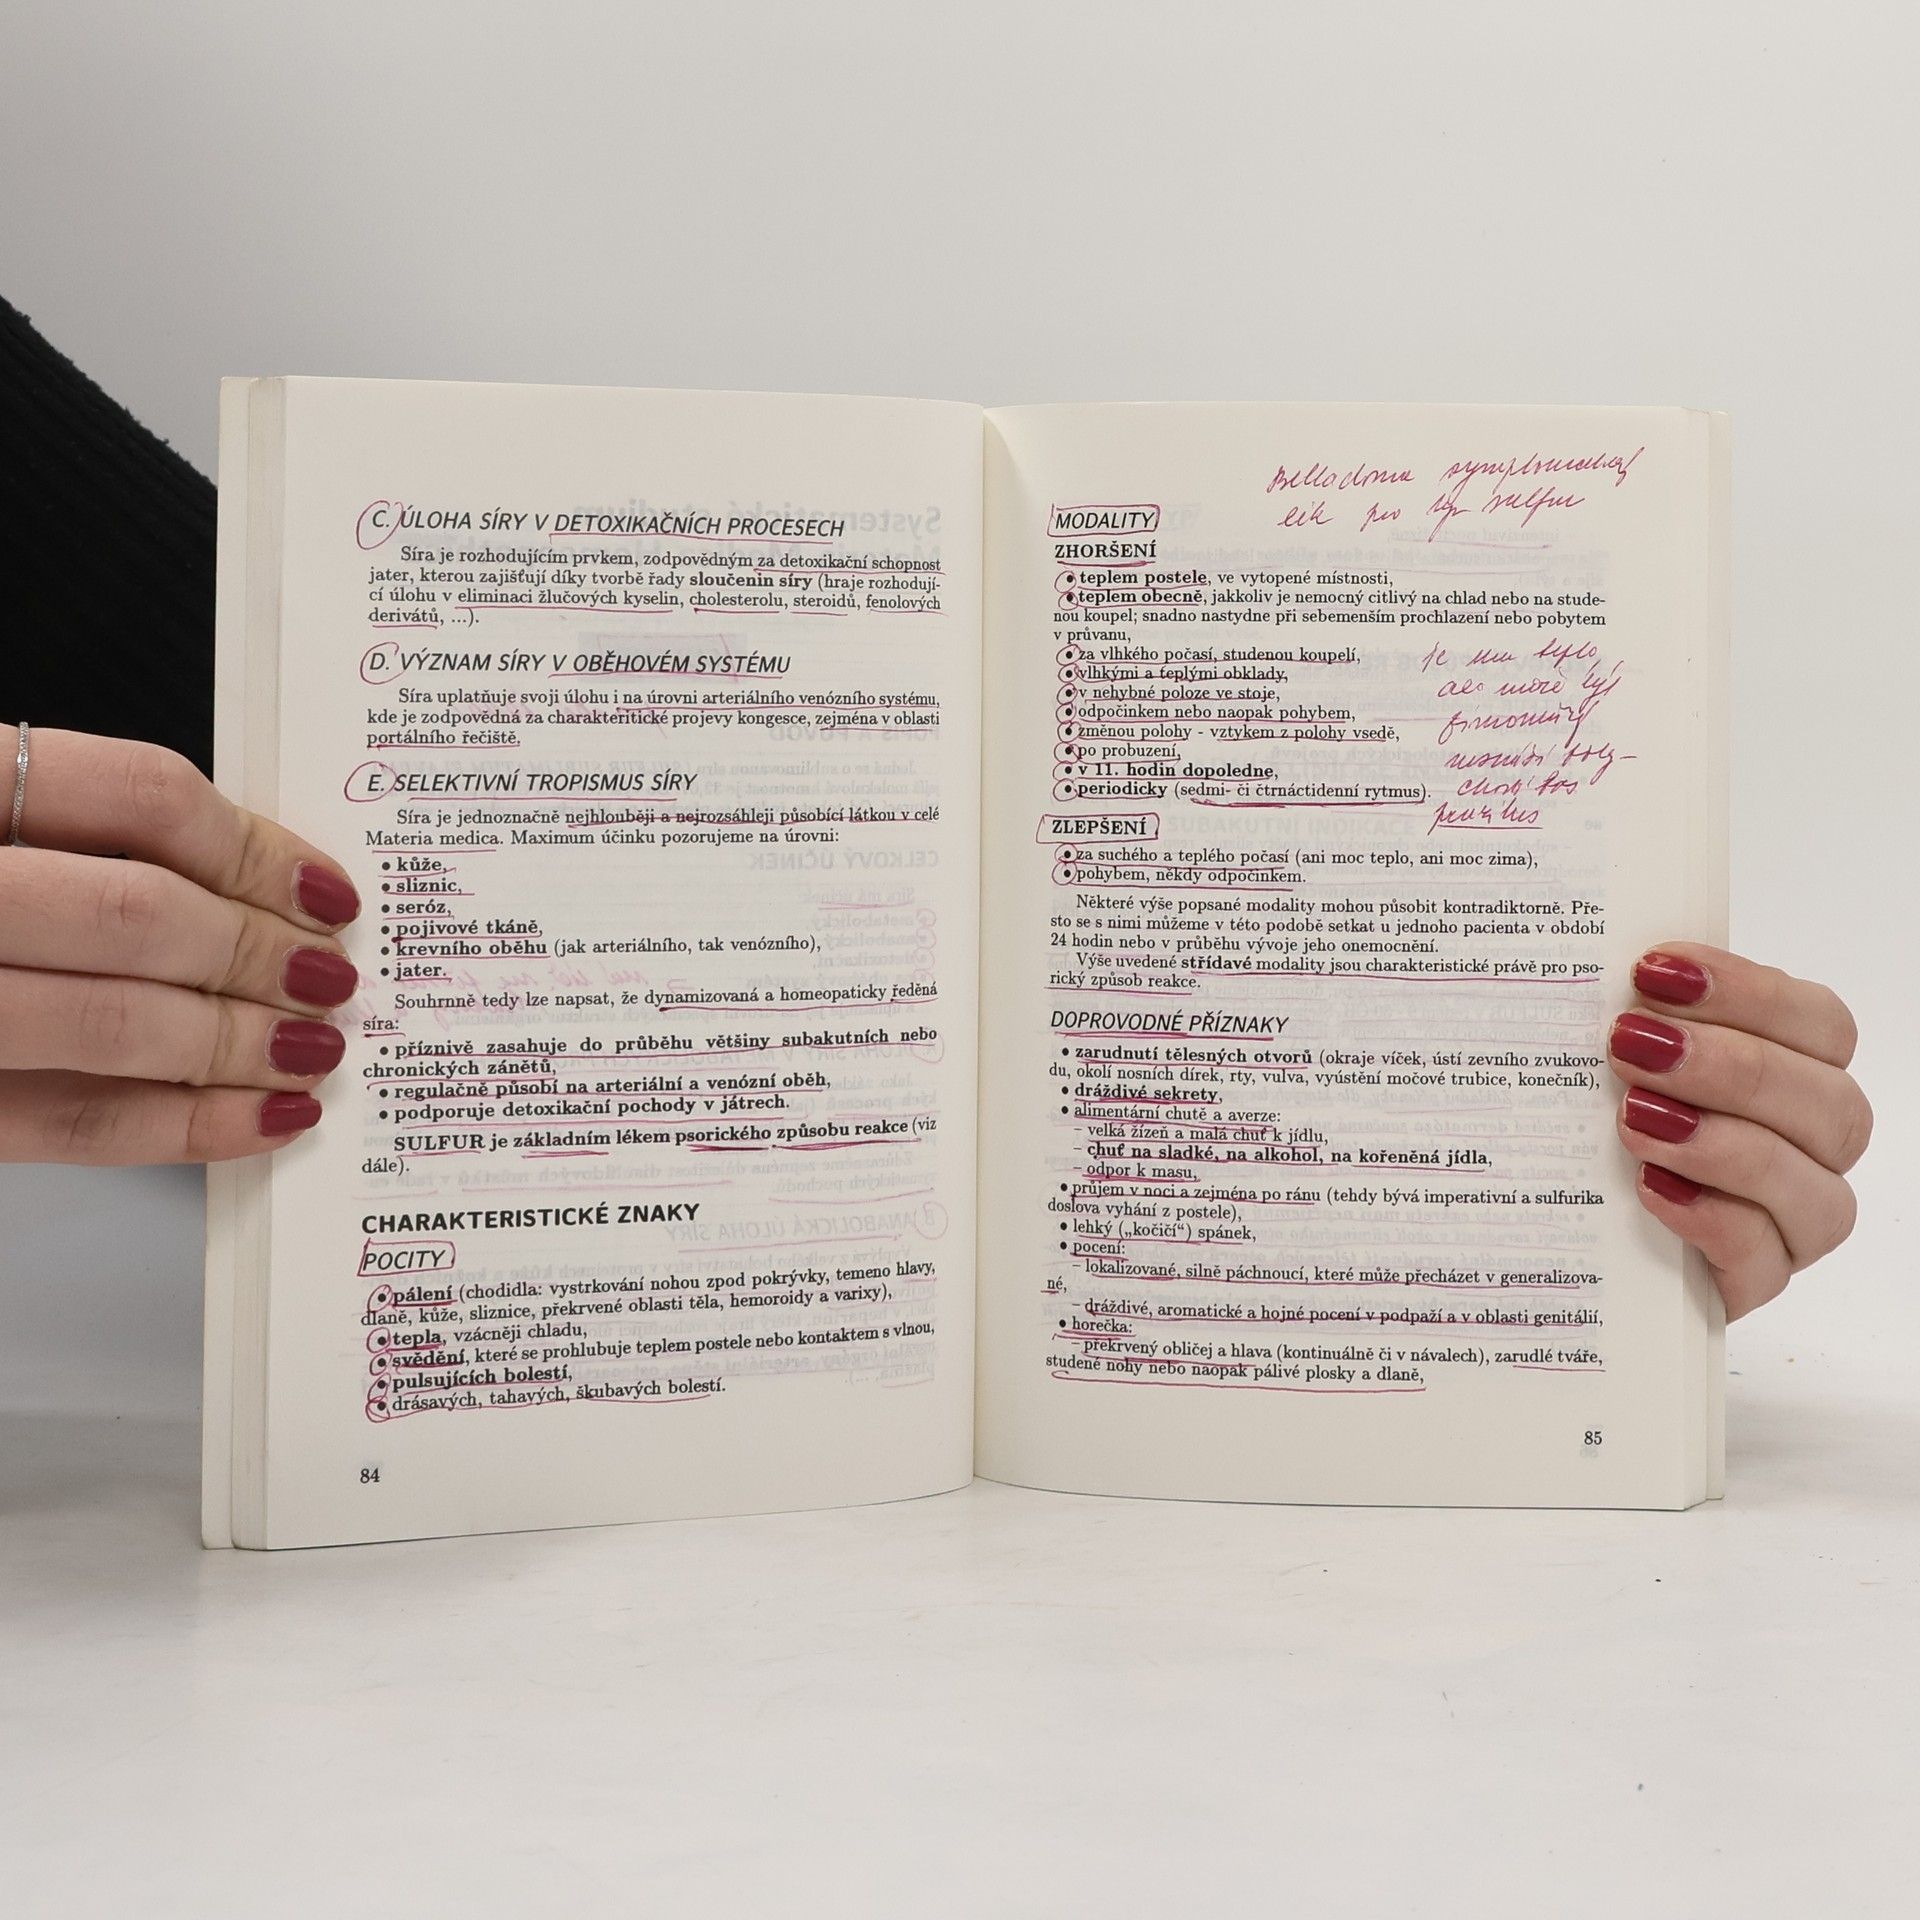 C. ÚLOHA SÍRY V DETOXIKAČNÍCH PROCESECH
Síra je rozhodujícím prvkem, zodpovědným za detoxikační schopnost
jater, kterou zajišťují díky tvorbě řady sloučenin síry (hraje rozhodují-
cí úlohu v eliminaci žlučových kyselin, cholesterolu, steroidů, fenolových
derivátů, ...).
D. VÝZNAM SÍRY V OBĚHOVÉM SYSTÉMU
Síra uplatňuje svoji úlohu i na úrovni arteriálního venózního systému,
kde je zodpovědná za charakteritické projevy kongesce, zejména v oblasti
portálního řečiště.
E. SELEKTIVNÍ TROPISMUS SÍRY
Síra je jednoznačně nejhlouběji a nejrozsáhleji působící látkou v celé
Materia medica. Maximum účinku pozorujeme na úrovni:
• kůže,
• sliznic,
• seróz,
• pojivové tkáně,
• krevního oběhu (jak arteriálního, tak venózního),
• jater.
Souhrnně tedy lze napsat, že dynamizovaná a homeopaticky ředěná
síra:
• příznivě zasahuje do průběhu většiny subakutních nebo
chronických zánětů,
• regulačně působí na arteriální a venózní oběh,
• podporuje detoxikační pochody v játrech.
SULFUR je základním lékem psorického způsobu reakce (viz
dále).
CHARAKTERISTICKÉ ZNAKY
POCITY
• pálení (chodidla: vystrkování nohou zpod pokrývky, temeno hlavy,
dlaně, kůže, sliznice, překrvené oblasti těla, hemoroidy a varixy),
• tepla, vzácněji chladu,
• svědění, které se prohlubuje teplem postele nebo kontaktem s vlnou,
• pulsujících bolestí,
• drásavých, tahavých, škubavých bolestí.
84
Belladonna
lék pro typ sulfur
MODALITY
ZHORŠENÍ
• teplem postele, ve vytopené místnosti,
• teplem obecně, jakkoliv je nemocný citlivý na chlad nebo na stude-
nou koupel; snadno nastydne při sebemenším prochlazení nebo pobytem
v průvanu,
• za vlhkého počasí, studenou koupelí,
• vlhkými a teplými obklady,
• v nehybné poloze ve stoje,
• odpočinkem nebo naopak pohybem,
• změnou polohy - vztykem z polohy vsedě,
• po probuzení,
• v 11. hodin dopoledne,
• periodicky (sedmi- či čtrnáctidenní rytmus).
je mu teplo,
ale může být
zimomřivý
ZLEPŠENÍ
• za suchého a teplého počasí (ani moc teplo, ani moc zima),
• pohybem, někdy odpočinkem.
Některé výše popsané modality mohou působit kontradiktorně. Pře-
sto se s nimi můžeme v této podobě setkat u jednoho pacienta v období
24 hodin nebo v průběhu vývoje jeho onemocnění.
Výše uvedené střídavé modality jsou charakteristické právě pro pso-
rický způsob reakce.
DOPROVODNÉ PŘÍZNAKY
• zarudnutí tělesných otvorů (okraje víček, ústí zevního zvukovo-
du, okolí nosních dírek, rty, vulva, vyústění močové trubice, konečník),
• dráždivé sekrety,
• alimentární chutě a averze:
– velká žízeň a malá chuť k jídlu,
– chuť na sladké, na alkohol, na kořeněná jídla,
– odpor k masu,
• průjem v noci a zejména po ránu (tehdy bývá imperativní a sulfurika
doslova vyhání z postele),
• lehký („kočičí“) spánek,
• pocení:
– lokalizované, silně páchnoucí, které může přecházet v generalizova-
né,
– dráždivé, aromatické a hojné pocení v podpaží a v oblasti genitálií,
• horečka:
– překrvený obličej a hlava (kontinuálně či v návalech), zarudlé tváře,
studené nohy nebo naopak pálivé plosky a dlaně,
85